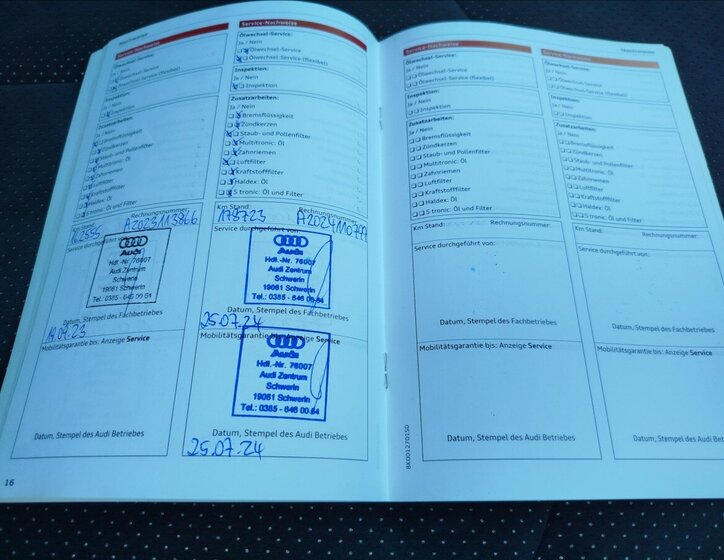 Nachweise
Service-Nachweise
Ölwechsel-Service:
Ja / Nein
Ölwechsel-Service
Ölwechsel-Service (flexibel)
Inspektion:
Ja / Nein
Inspektion
Zusatzarbeiten:
Ja / Nein
Bremsflüssigkeit
Zündkerzen
Staub- und Pollenfilter
Multitronic: Öl
Zahnriemen
Luftfilter
Kraftstofffilter
Haldex: Öl
S tronic: Öl und Filter
Rechnungsnummer:
A2023113866
Service durchgeführt von:
Audi
Hdl.-Nr. 76007
Audi Zentrum
Schwerin
19061 Schwerin
Tel.: 0385 - 646 00 84
Datum, Stempel des Fachbetriebes
19.09.23
Mobilitätsgarantie bis: Anzeige Service
Datum, Stempel des Audi Betriebes
16
Service-Nachweise
Ölwechsel-Service:
Ja / Nein
Ölwechsel-Service
Ölwechsel-Service (flexibel)
Inspektion:
Ja / Nein
Inspektion
Zusatzarbeiten:
Ja / Nein
Bremsflüssigkeit
Zündkerzen
Staub- und Pollenfilter
Multitronic: Öl
Zahnriemen
Luftfilter
Kraftstofffilter
Haldex: Öl
S tronic: Öl und Filter
Km Stand: Rechnungsnummer:
178723
Service durchgeführt von:
Audi
Hdl.-Nr. 76007
Audi Zentrum
Schwerin
19061 Schwerin
Tel.: 0385 - 646 00 84
Datum, Stempel des Fachbetriebes
25.07.24
Mobilitätsgarantie bis: Anzeige Service
Audi
Hdl.-Nr. 76007
Audi Zentrum
Schwerin
19061 Schwerin
Tel.: 0385 - 646 00 84
Datum, Stempel des Audi Betriebes
25.07.24
Service-Nachweise
Ölwechsel-Service:
Ja / Nein
Ölwechsel-Service
Ölwechsel-Service (flexibel)
Inspektion:
Ja / Nein
Inspektion
Zusatzarbeiten:
Ja / Nein
Bremsflüssigkeit
Zündkerzen
Staub- und Pollenfilter
Multitronic: Öl
Zahnriemen
Luftfilter
Kraftstofffilter
Haldex: Öl
S tronic: Öl und Filter
Km Stand: Rechnungsnummer:
Service durchgeführt von:
Datum, Stempel des Fachbetriebes
Mobilitätsgarantie bis: Anzeige Service
Datum, Stempel des Audi Betriebes
Nachweise
Service-Nachweise
Ölwechsel-Service:
Ja / Nein
Ölwechsel-Service
Ölwechsel-Service (flexibel)
Inspektion:
Ja / Nein
Inspektion
Zusatzarbeiten:
Ja / Nein
Bremsflüssigkeit
Zündkerzen
Staub- und Pollenfilter
Multitronic: Öl
Zahnriemen
Luftfilter
Kraftstofffilter
Haldex: Öl
S tronic: Öl und Filter
Km Stand: Rechnungsnummer:
Service durchgeführt von:
Datum, Stempel des Fachbetriebes
Mobilitätsgarantie bis: Anzeige Service
Datum, Stempel des Audi Betriebes